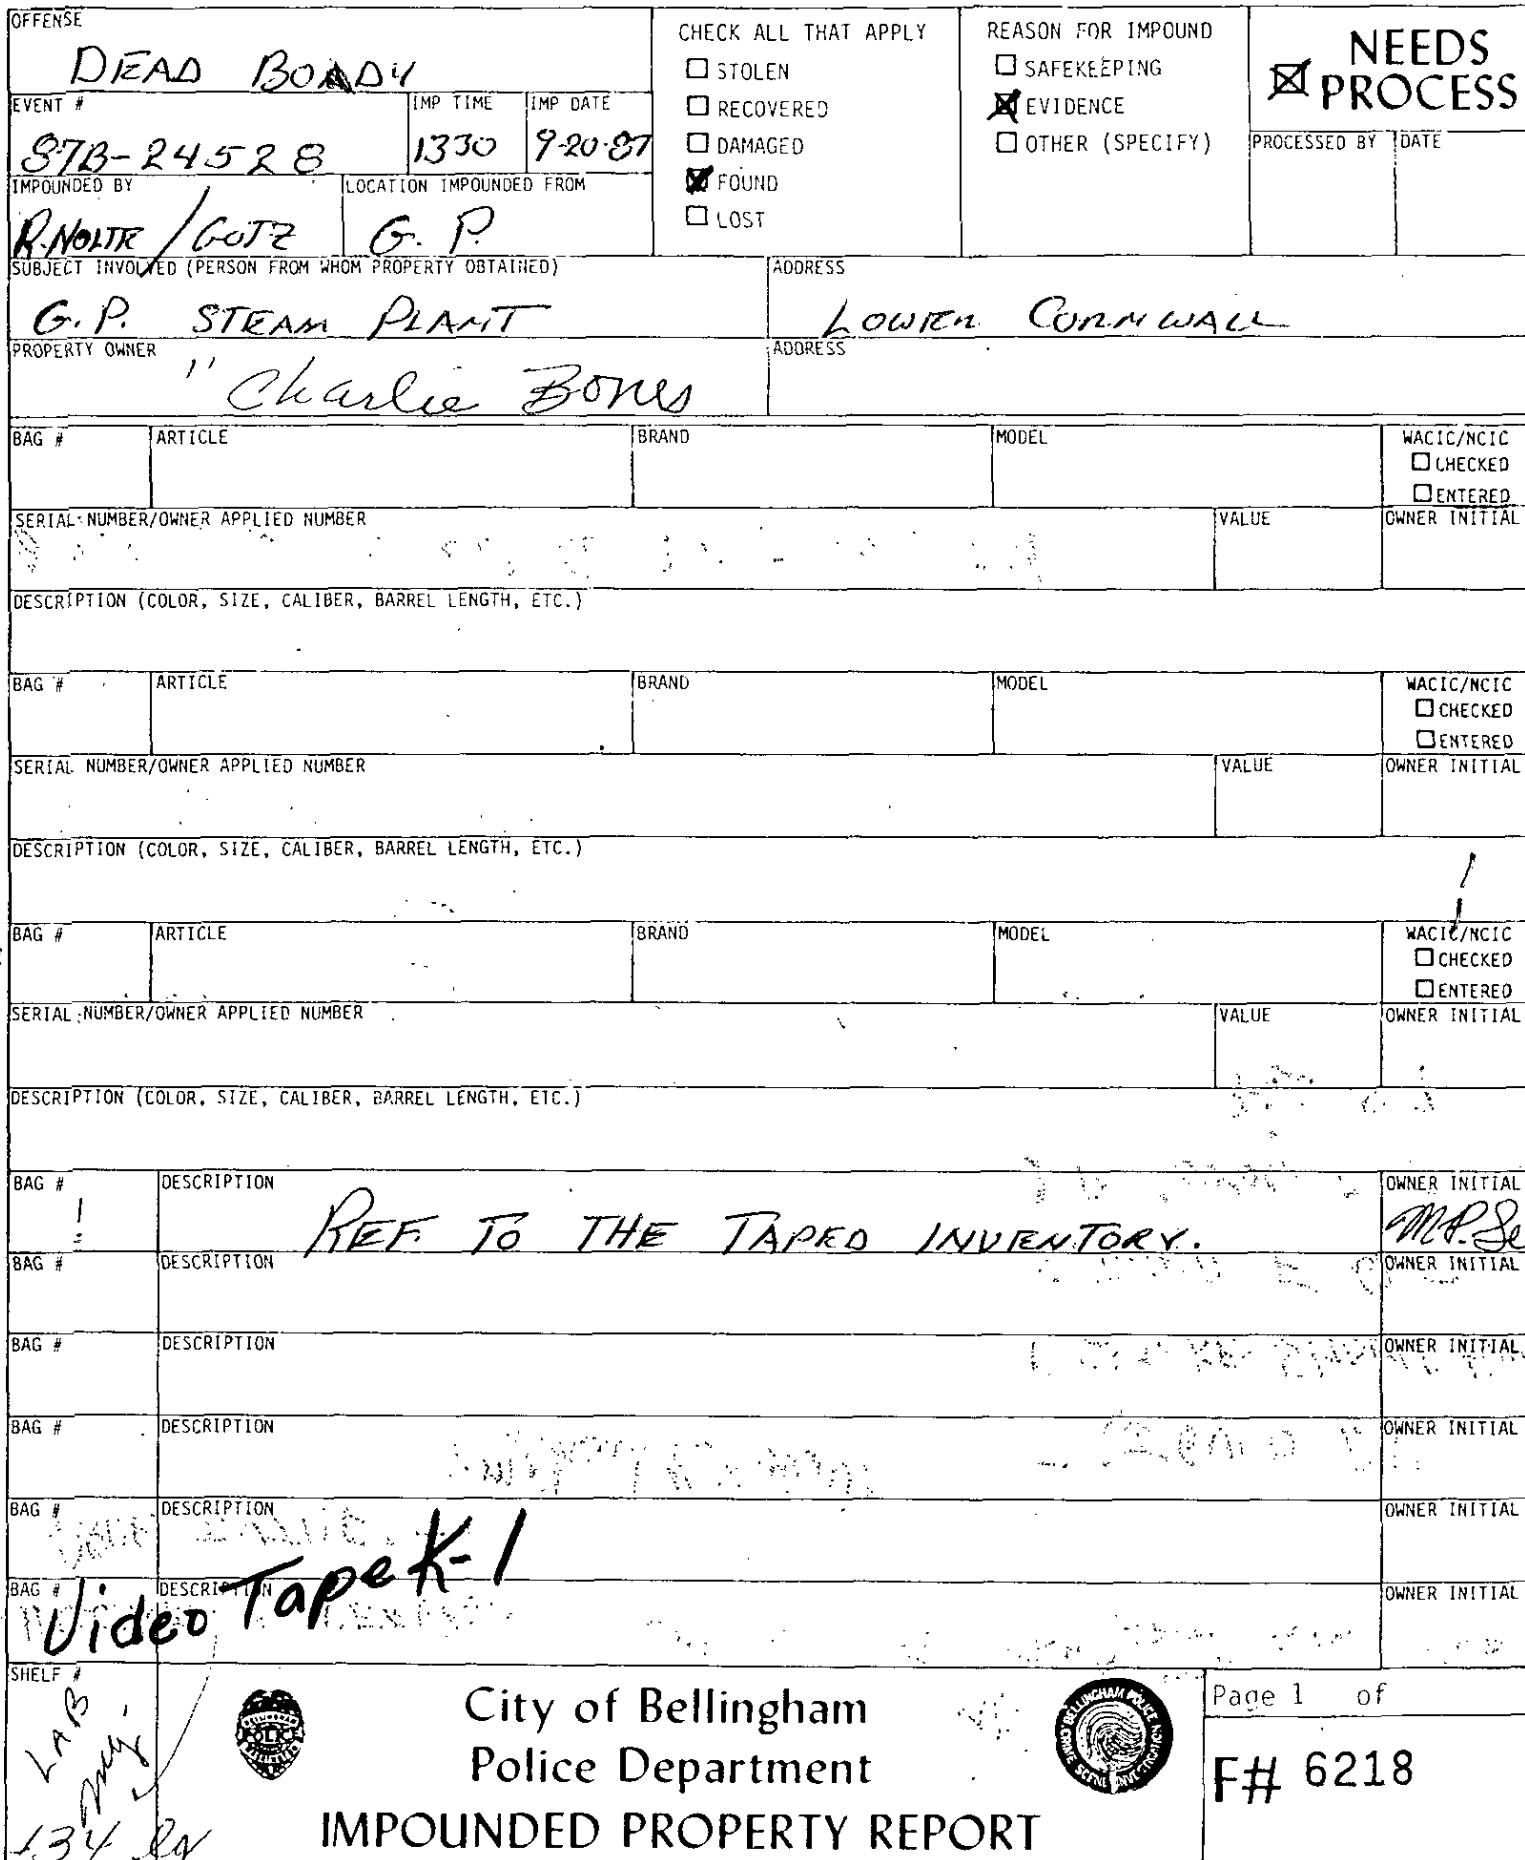 OFFENSE
DEAD BOADY
EVENT #
87B-24528
IMP TIME
1330
IMP DATE
9-20-87
IMPOUNDED BY
R. NOLTE / GOTZ
LOCATION IMPOUNDED FROM
G. P.
CHECK ALL THAT APPLY
STOLEN
RECOVERED
DAMAGED
FOUND
LOST
REASON FOR IMPOUND
SAFEKEEPING
EVIDENCE
OTHER (SPECIFY)
NEEDS
PROCESS
PROCESSED BY
DATE
SUBJECT INVOLVED (PERSON FROM WHOM PROPERTY OBTAINED)
G.P. STEAM PLANT
ADDRESS
LOWER CORNWALL
PROPERTY OWNER
" Charlie Bones
ADDRESS
BAG # ARTICLE BRAND MODEL WACIC/NCIC
CHECKED
ENTERED
SERIAL NUMBER/OWNER APPLIED NUMBER VALUE OWNER INITIAL
DESCRIPTION (COLOR, SIZE, CALIBER, BARREL LENGTH, ETC.)
BAG # ARTICLE BRAND MODEL WACIC/NCIC
CHECKED
ENTERED
SERIAL NUMBER/OWNER APPLIED NUMBER VALUE OWNER INITIAL
DESCRIPTION (COLOR, SIZE, CALIBER, BARREL LENGTH, ETC.)
BAG # ARTICLE BRAND MODEL WACIC/NCIC
CHECKED
ENTERED
SERIAL NUMBER/OWNER APPLIED NUMBER VALUE OWNER INITIAL
DESCRIPTION (COLOR, SIZE, CALIBER, BARREL LENGTH, ETC.)
BAG # DESCRIPTION OWNER INITIAL
REF. TO THE TAPED INVENTORY.
BAG # DESCRIPTION OWNER INITIAL
BAG # DESCRIPTION OWNER INITIAL
BAG # DESCRIPTION OWNER INITIAL
BAG # DESCRIPTION OWNER INITIAL
BAG # DESCRIPTION OWNER INITIAL
Video Tape K-1
SHELF #
LAB
City of Bellingham
Police Department
IMPOUNDED PROPERTY REPORT
Page 1 of
F# 6218